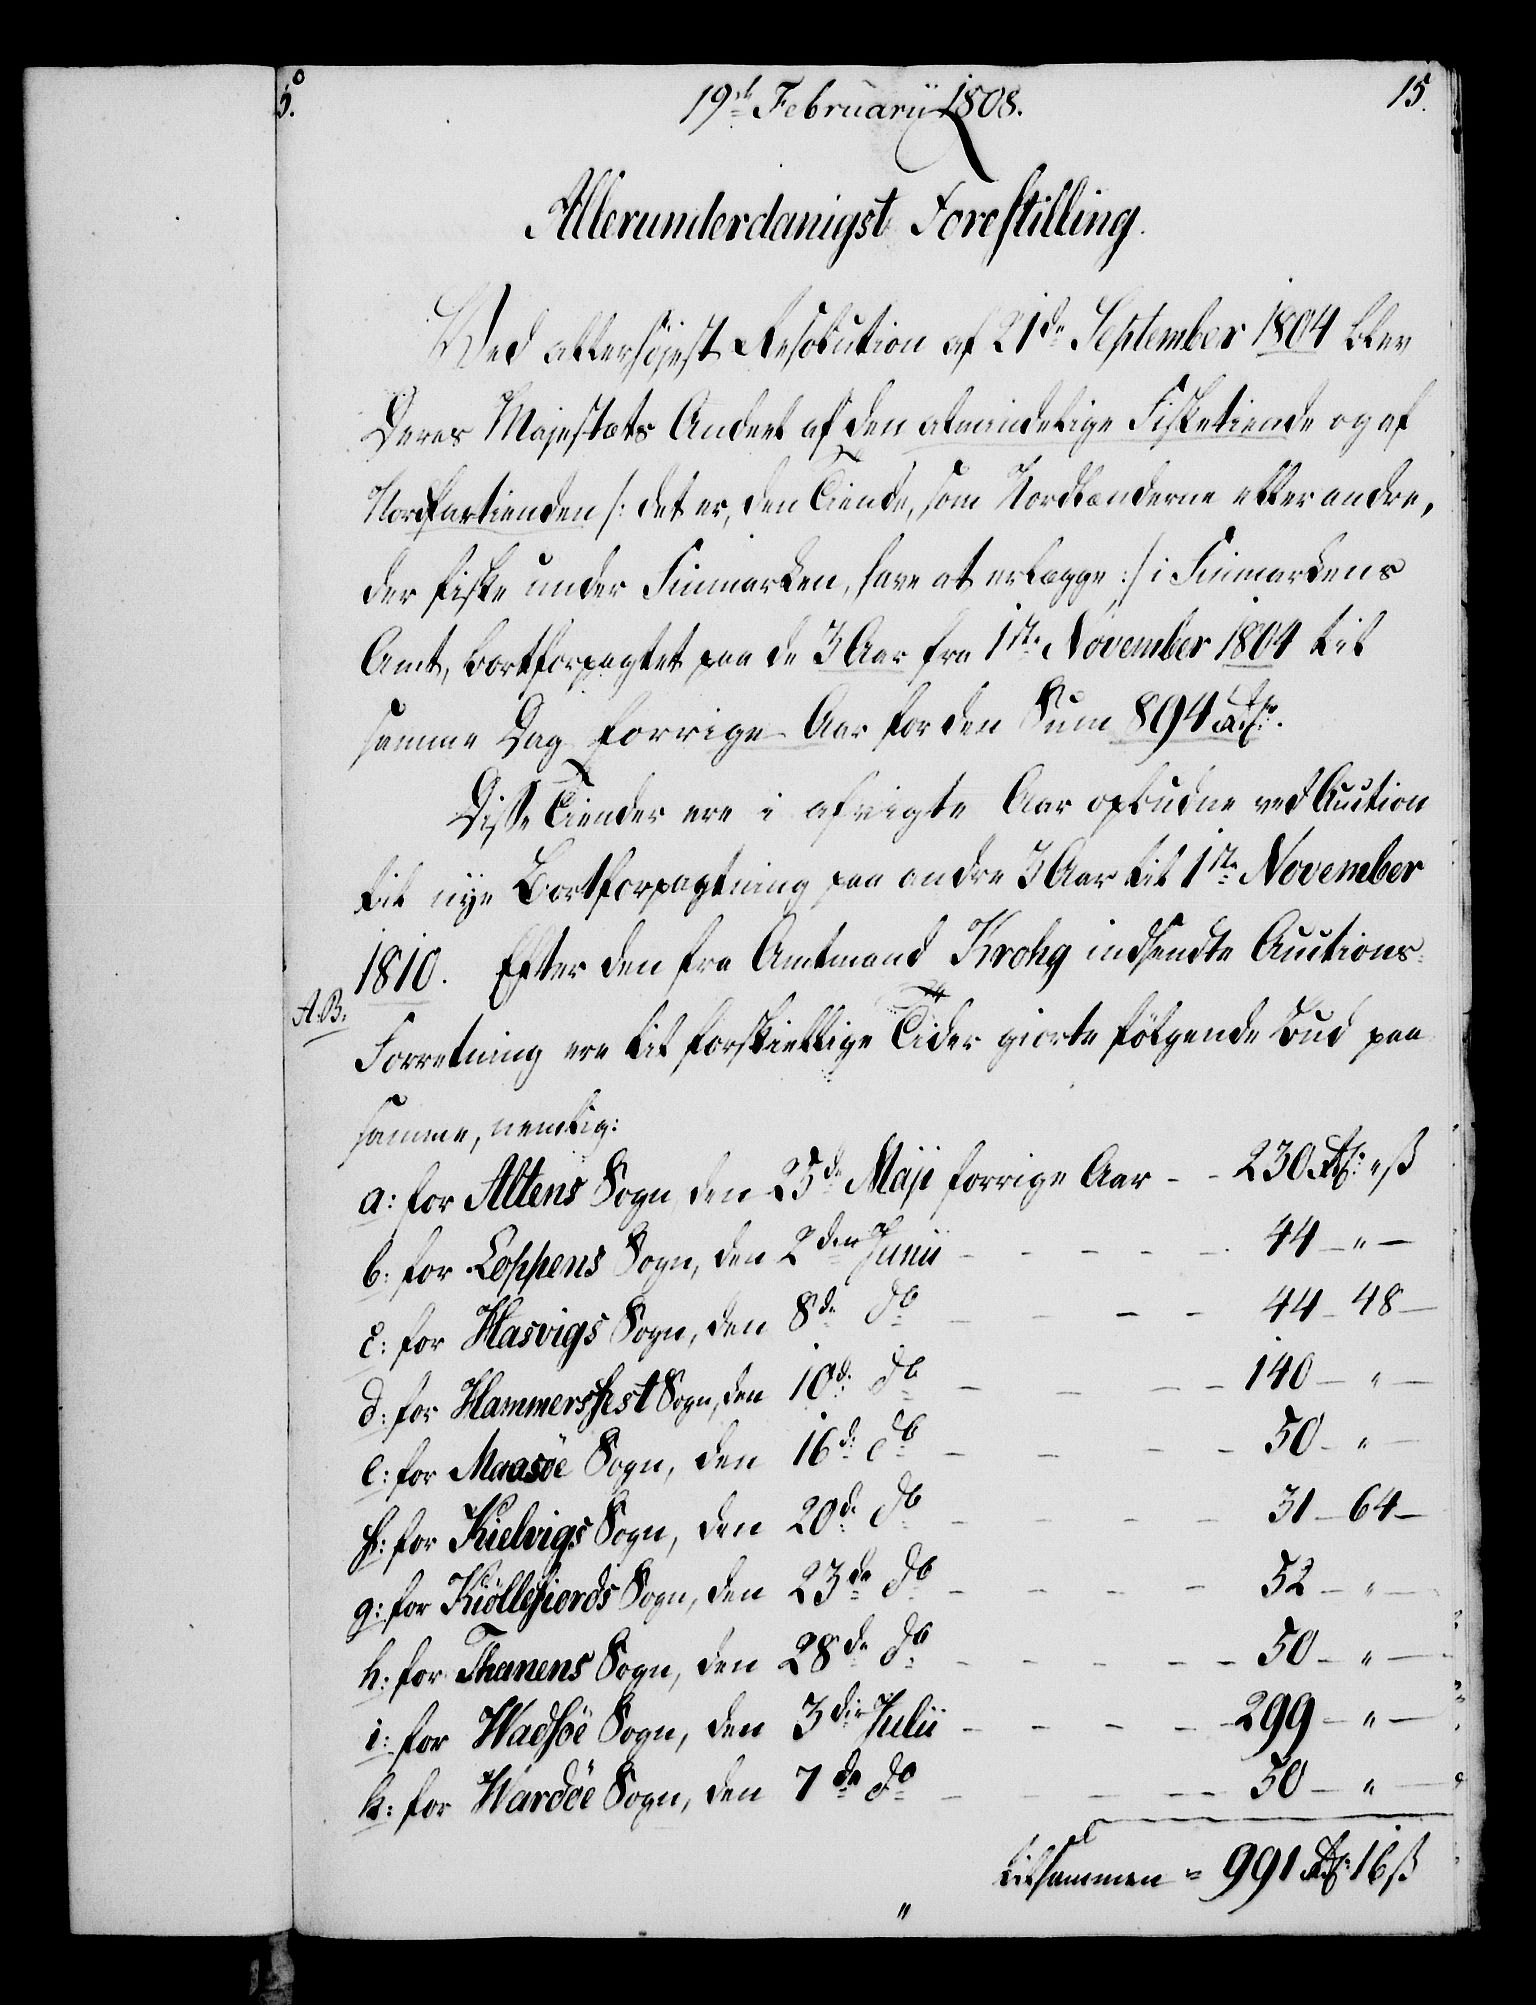 5.°
19de Februarii 1808.
15.
Allerunderdanigst Forestilling.
Ved allerhöjest Resolution af 21de September 1804 blev
Deres Majestæts Andeel af den almindelige Fisketiende og af
Nordfartienden /: det er, den Tiende, som Nordlænderne eller andre,
der fiske under Finmarken, have at erlægge :/ i Finmarkens
Amt, bortforpagtet paa de 3 Aar fra 1ste November 1804 til
samme Dag forrige Aar for den Sum 894 Rdlr.
Disse Tiender ere i afvigte Aar opbudne ved Auction
til nye Bortforpagtning paa andre 3 Aar til 1ste November
1810. Efter den fra Amtmand Krohg indsendte Auctions-
A.B.
Forretning ere til forskiellige Tider giorte fölgende Bud paa
samme, nemlig:
a: for Altens Sogn, den 25de Maji forrige Aar - - 230 Rd: " ß
b: for Loppens Sogn, den 2den Junii - - - - - 44 - " -
c: for Hasvigs Sogn, den 8de do - - - - 44 - 48 -
d: for Hammersfest Sogn, den 10de do - - - - 140 - " -
e: for Maasöe Sogn, den 16de do - - - - 50 - " -
f: for Kielvigs Sogn, den 20de do - - - - 31 - 64 -
g: for Kiöllefiords Sogn, den 23de do - - - - 52 - " -
h: for Thanens Sogn, den 28de do - - - - - 50 - " -
i: for Wadsöe Sogn, den 3die Julii - - - - - 299 - " -
k: for Wardöe Sogn, den 7de do - - - - - 50 - " -
tilsammen = 991 Rd: 16 ß
"